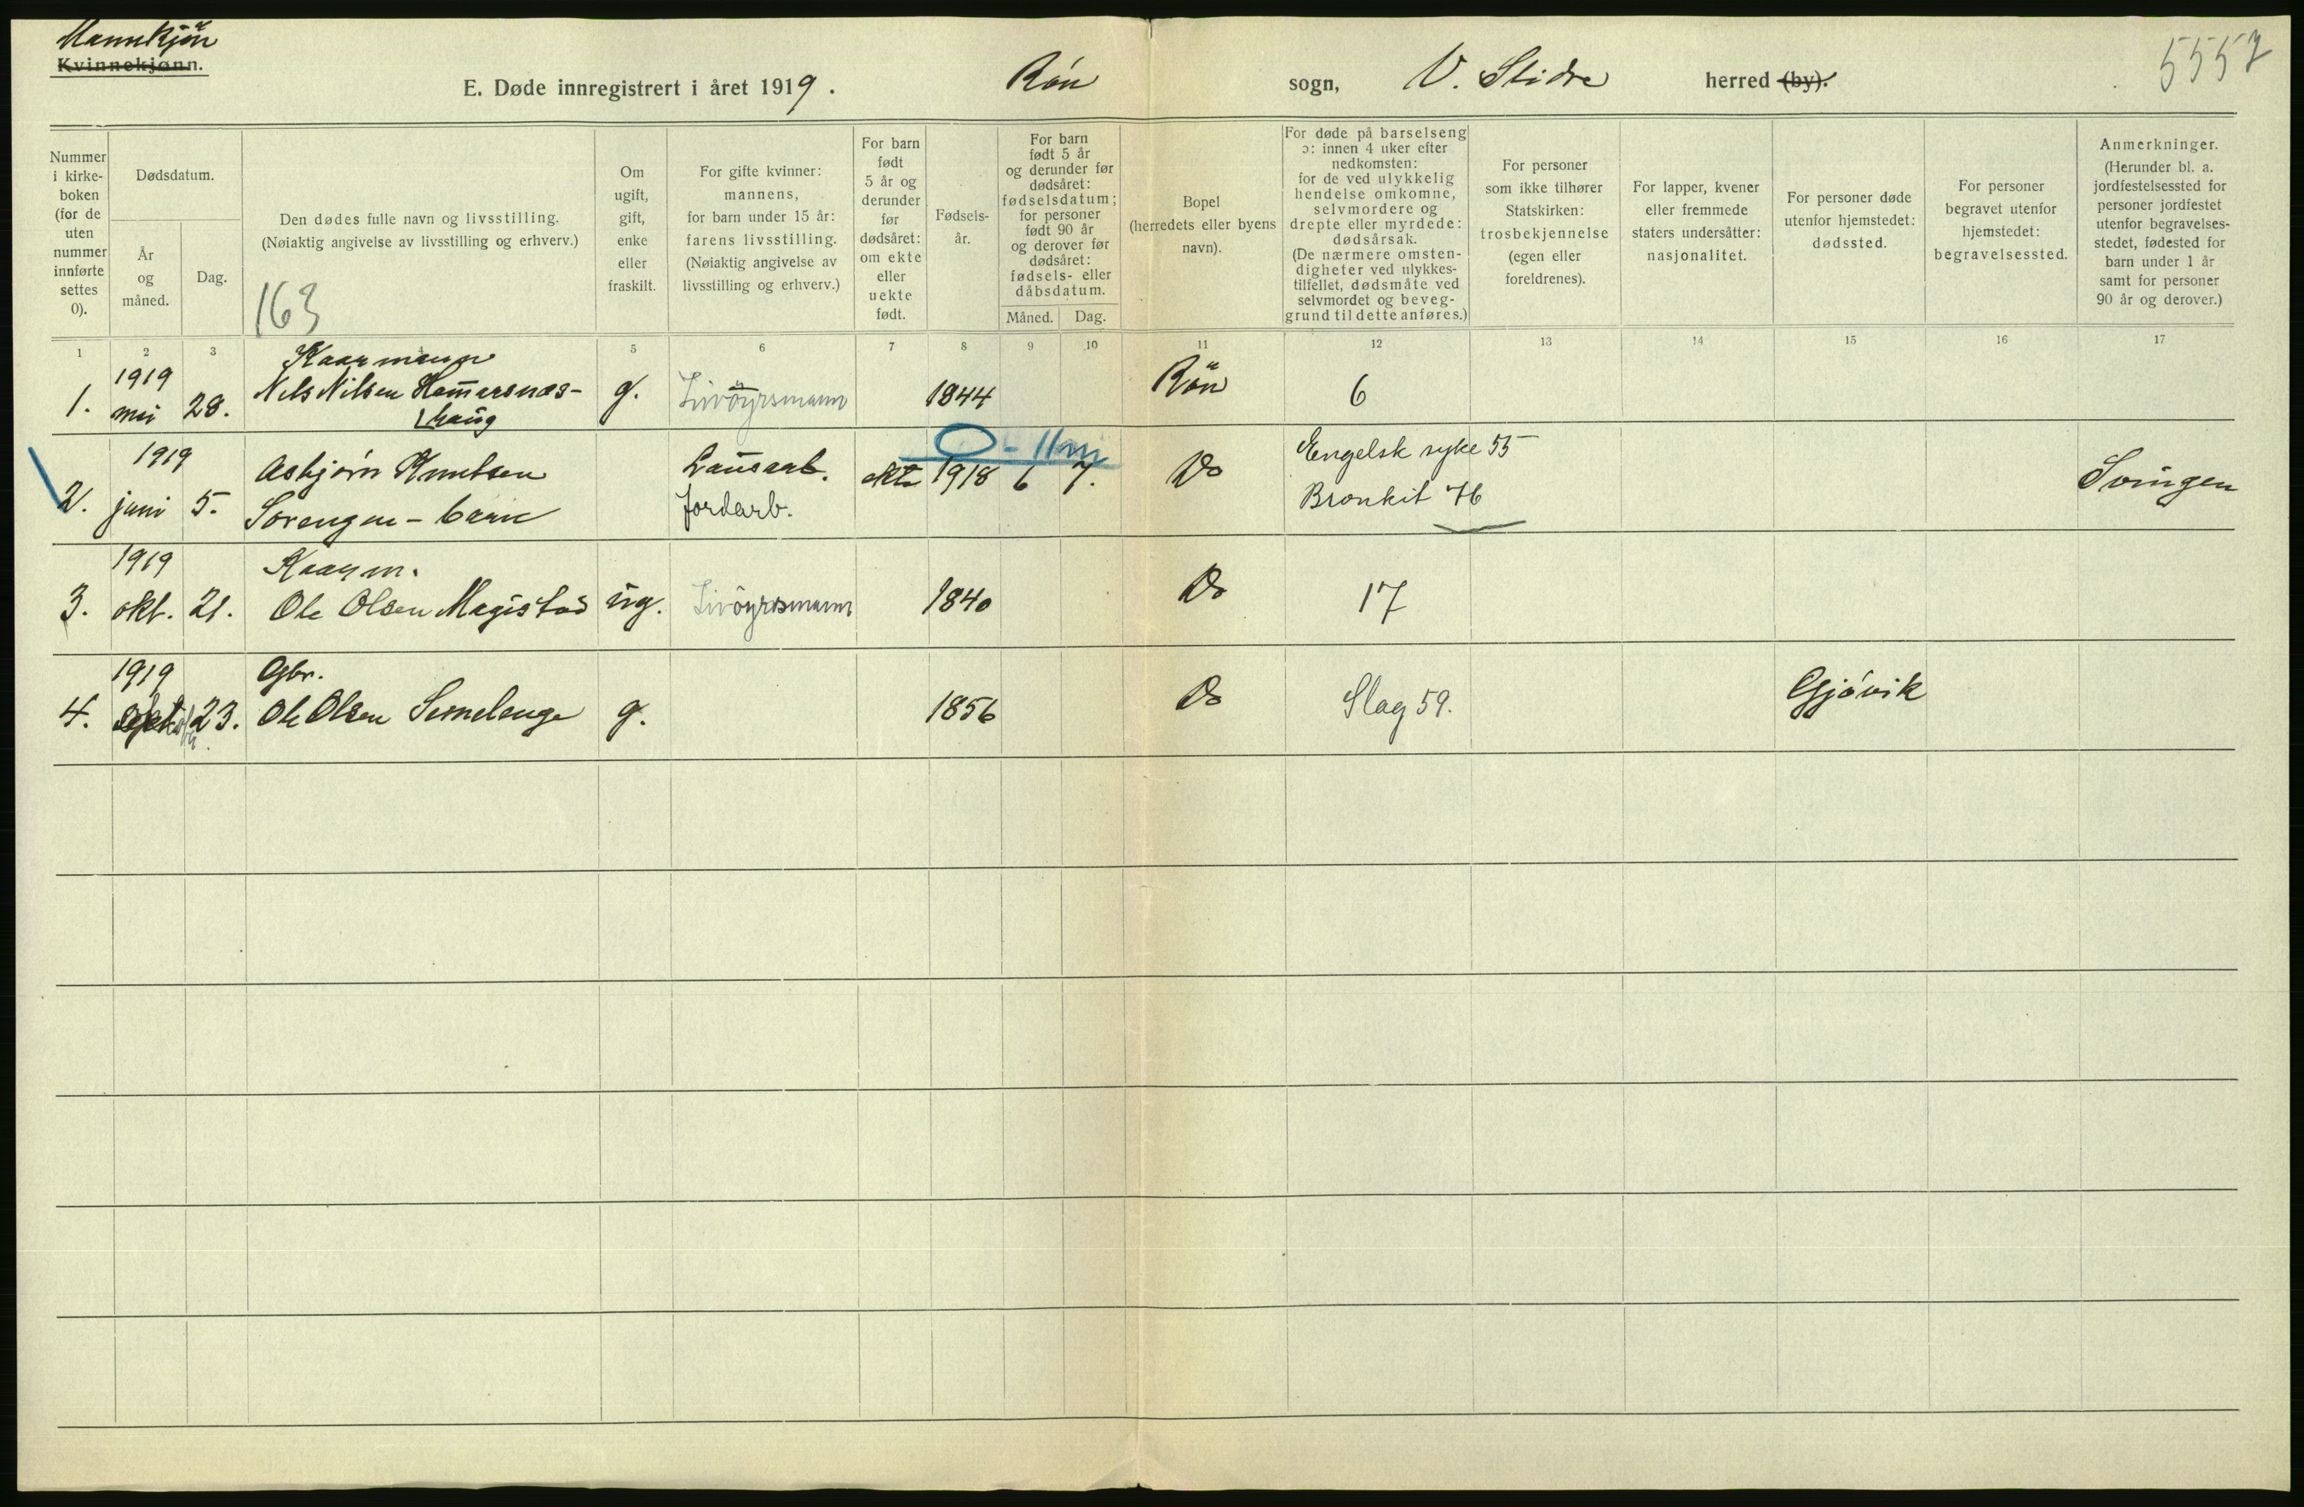 Mannkjön
Kvinnekjønn.
E. Døde innregistrert i året 1919.
Røn
sogn,
V. Slidre
herred (by).
5557
Nummer i kirke-boken (for de uten nummer innførte settes 0).
Dødsdatum.
År og måned.
Dag.
Den dødes fulle navn og livsstilling.
(Nøiaktig angivelse av livsstilling og erhverv.)
163
Om ugift, gift, enke eller fraskilt.
For gifte kvinner: mannens, for barn under 15 år: farens livsstilling.
(Nøiaktig angivelse av livsstilling og erhverv.)
For barn født 5 år og derunder før dødsåret: om ekte eller uekte født.
Fødsels-år.
For barn født 5 år og derunder før dødsåret: fødselsdatum; for personer født 90 år og derover før dødsåret: fødsels- eller dåbsdatum.
Måned.
Dag.
Bopel
(herredets eller byens navn).
For døde på barselseng ɔ: innen 4 uker efter nedkomsten: for de ved ulykkelig hendelse omkomne, selvmordere og drepte eller myrdede: dødsårsak.
(De nærmere omsten-digheter ved ulykkes-tilfellet, dødsmåte ved selvmordet og beveg-grund til dette anføres.)
For personer som ikke tilhører Statskirken: trosbekjennelse (egen eller foreldrenes).
For lapper, kvener eller fremmede staters undersåtter: nasjonalitet.
For personer døde utenfor hjemstedet: dødssted.
For personer begravet utenfor hjemstedet: begravelsessted.
Anmerkninger.
(Herunder bl. a. jordfestelsessted for personer jordfestet utenfor begravelses-stedet, fødested for barn under 1 år samt for personer 90 år og derover.)
1 2 3 4 5 6 7 8 9 10 11 12 13 14 15 16 17
1. 1919 mai 28. Kaarmann Nils Nilsen Hamarsnes-haug g. Livöyrsmann 1844 Røn 6
0 - 11 m
2. 1919 juni 5. Asbjørn Knutsen Sørengen - barn Lausarb. Jordarb. ekte 1918 6 7. Do Engelsk syke 55 Bronkit 76 Svingen
3. 1919 okt. 21. Kaarm. Ole Olsen Magistad ug. Livöyrsmann 1840 Do 17
4. 1919 23. Gbr. Ole Olsen Semelenge g. 1856 Do Slag 59. Gjøvik